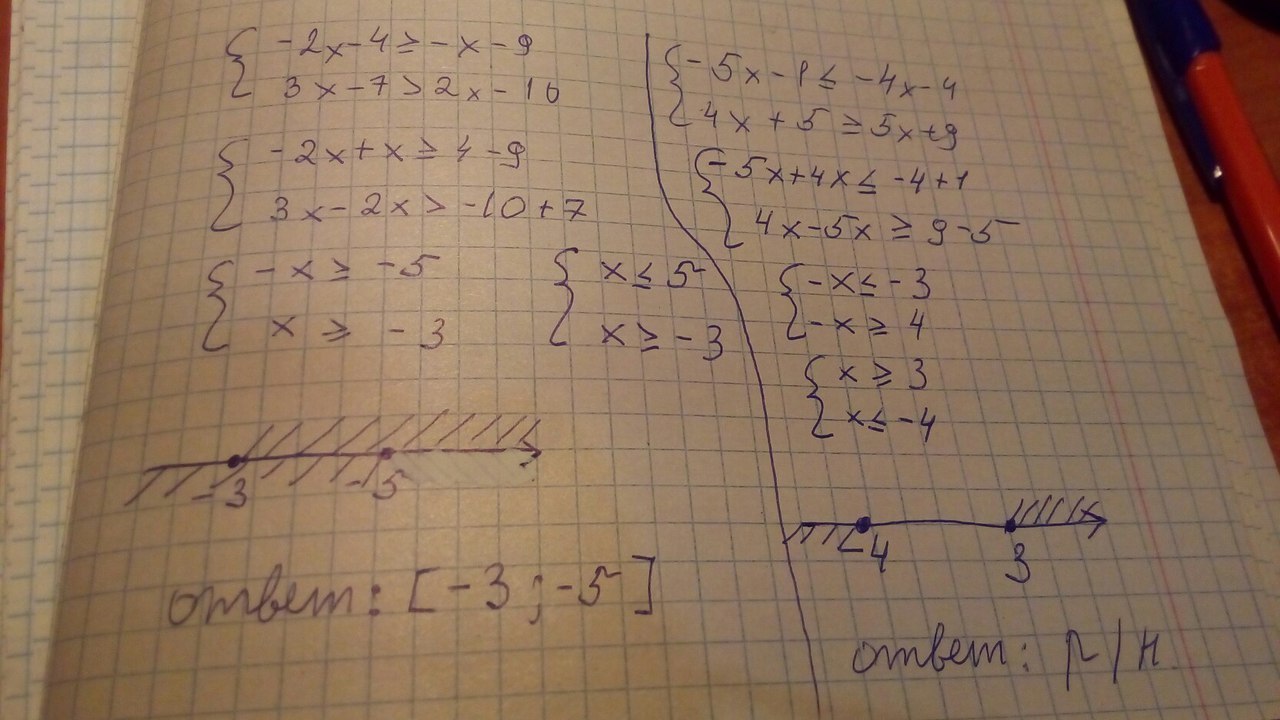 -2x-4≥-x-9
3x-7>2x-10
-2x+x≥4-9
3x-2x>-10+7
-x≥-5
x≥-3
x≤5
x≥-3
-3 -5
ответ: [-3;-5]
-5x-1≤-4x-4
4x+5≥5x+9
-5x+4x≤-4+1
4x-5x≥9-5
-x≤-3
-x≥4
x≥3
x≤-4
-4 3
ответ: р/н.